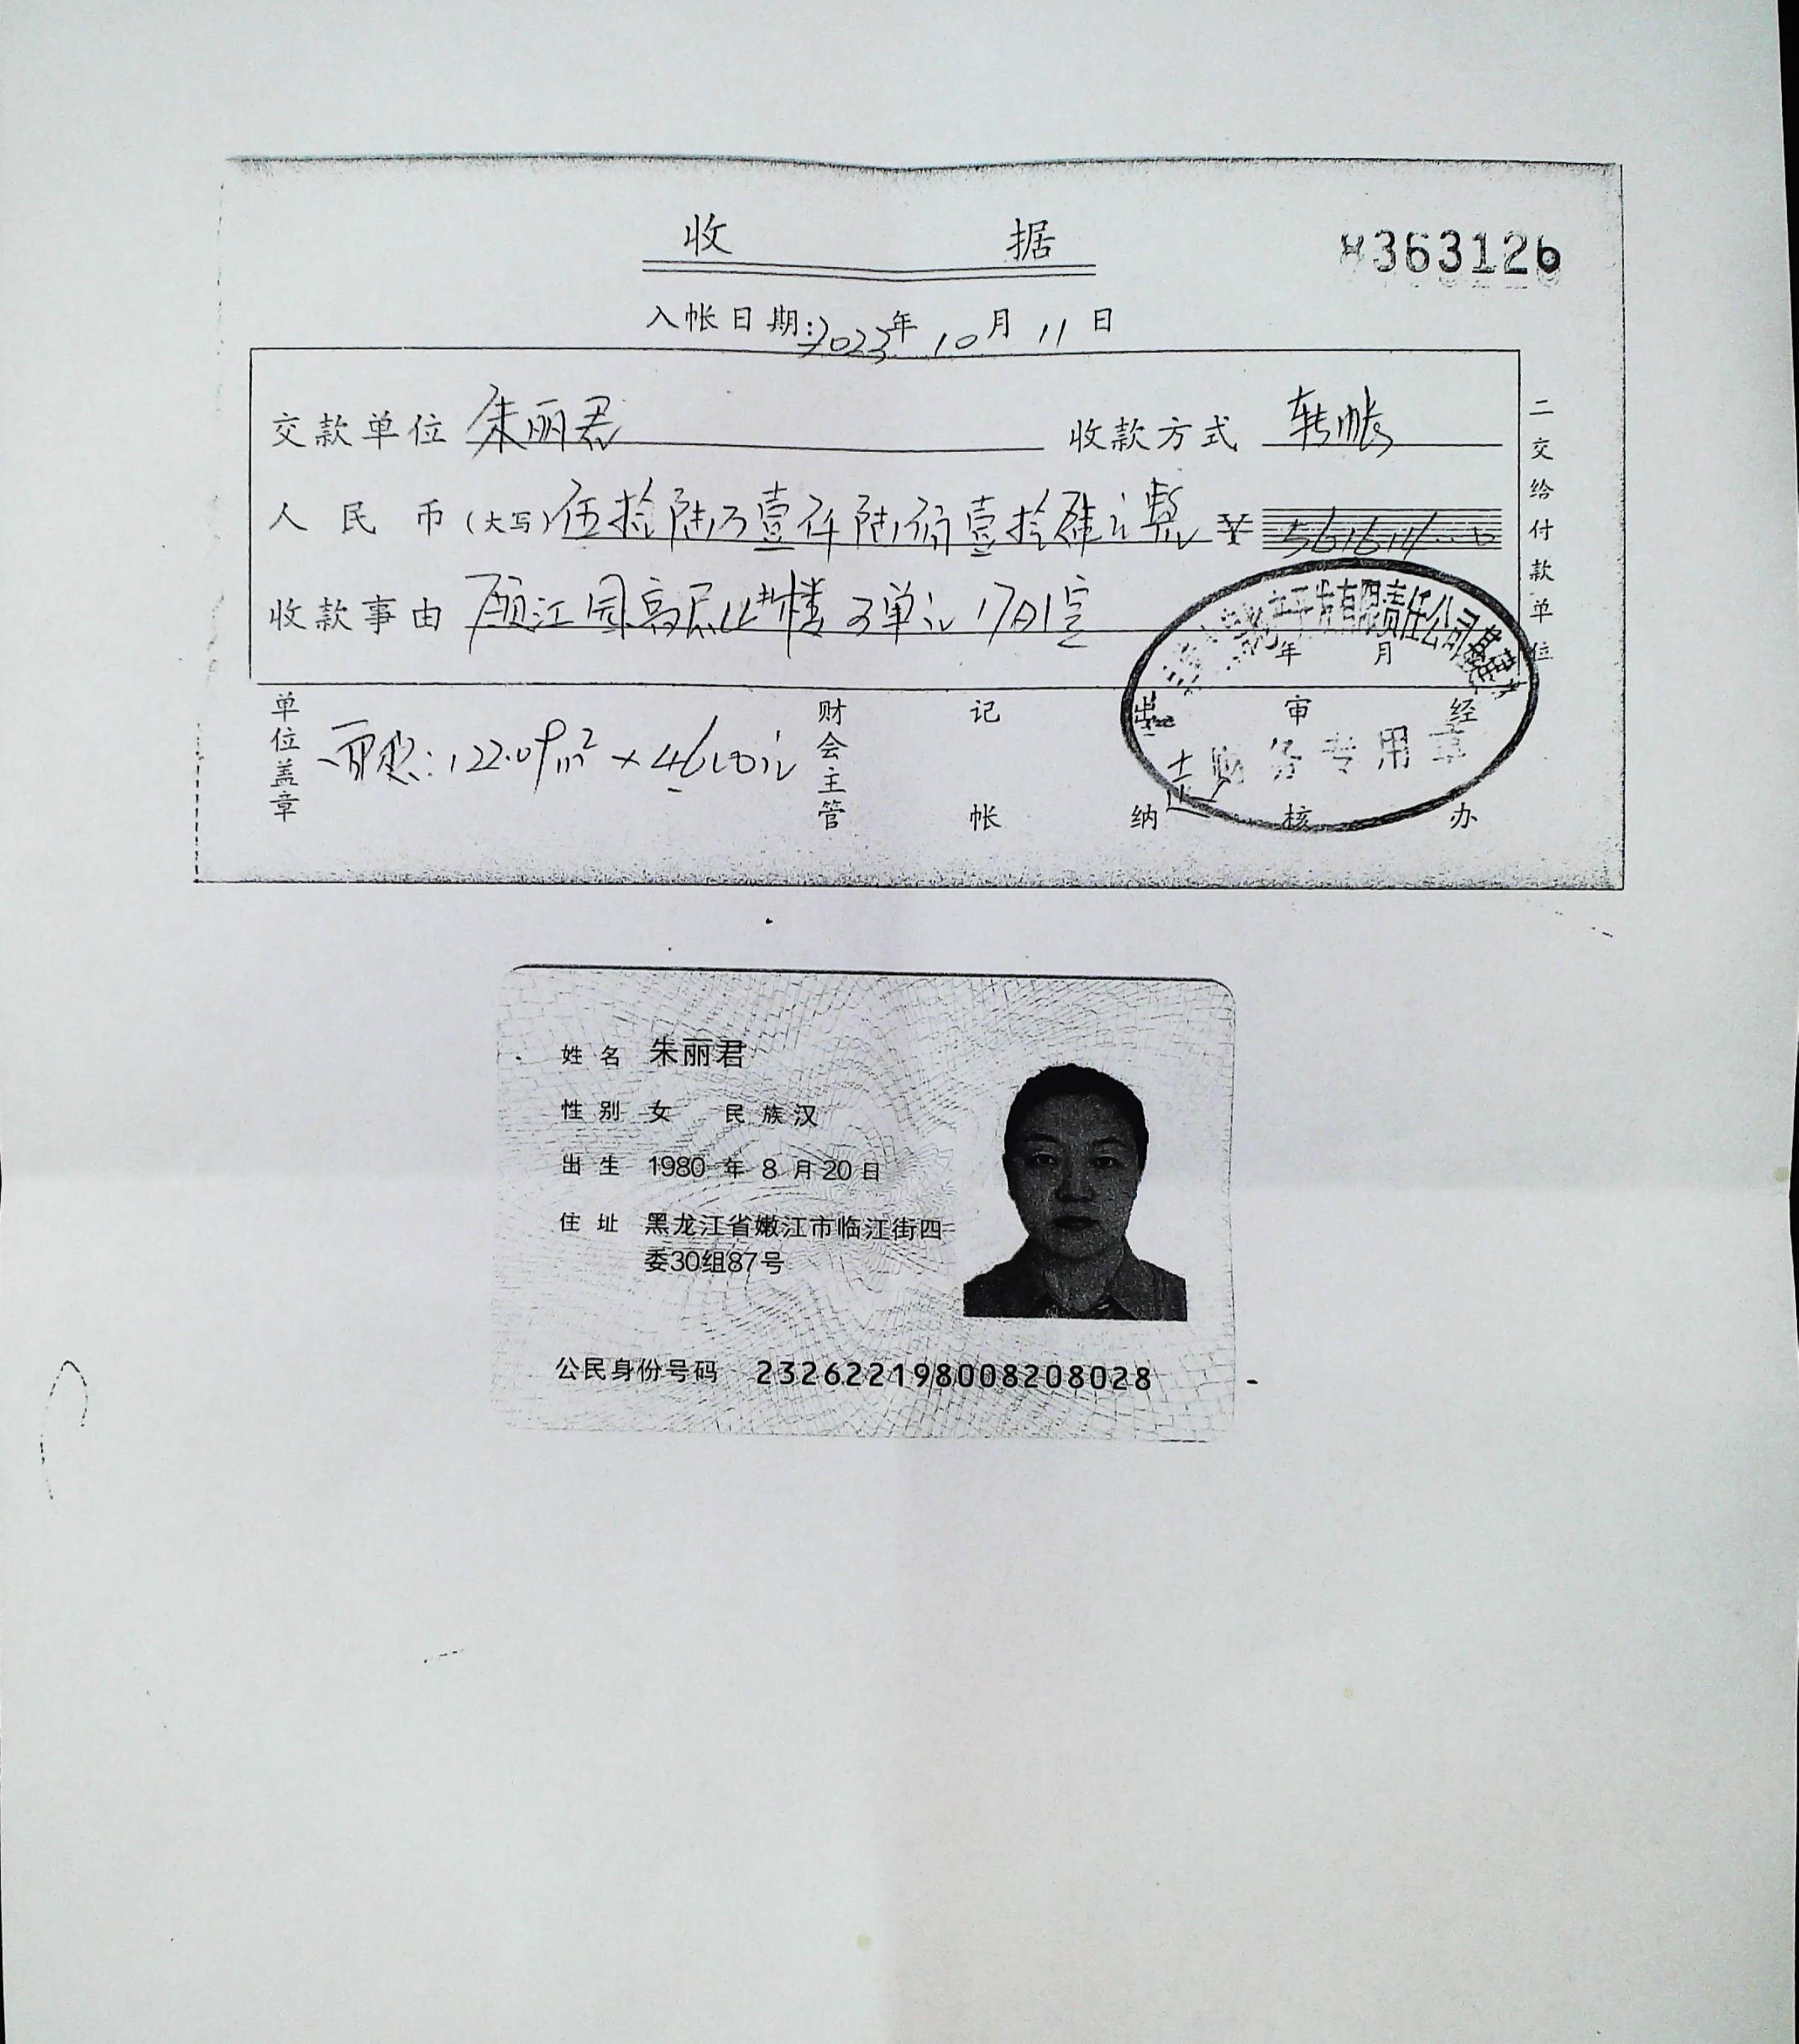 收 据
363126
入帐日期:2023年10月11日
交款单位 朱丽君 收款方式 转帐
人民币(大写)伍拾陆万壹仟陆佰壹拾肆元整 ¥ 561614.00
收款事由 颐江园高层 楼 单元1701室
年 月
二交给付款单位
单位盖章 面积:122.09m² × 4600元 财会主管 记帐 出纳 审核 经办
开发有限责任公司
财务专用章
姓名 朱丽君
性别 女 民族 汉
出生 1980年8月20日
住址 黑龙江省嫩江市临江街四
委30组87号
公民身份号码 232622198008208028